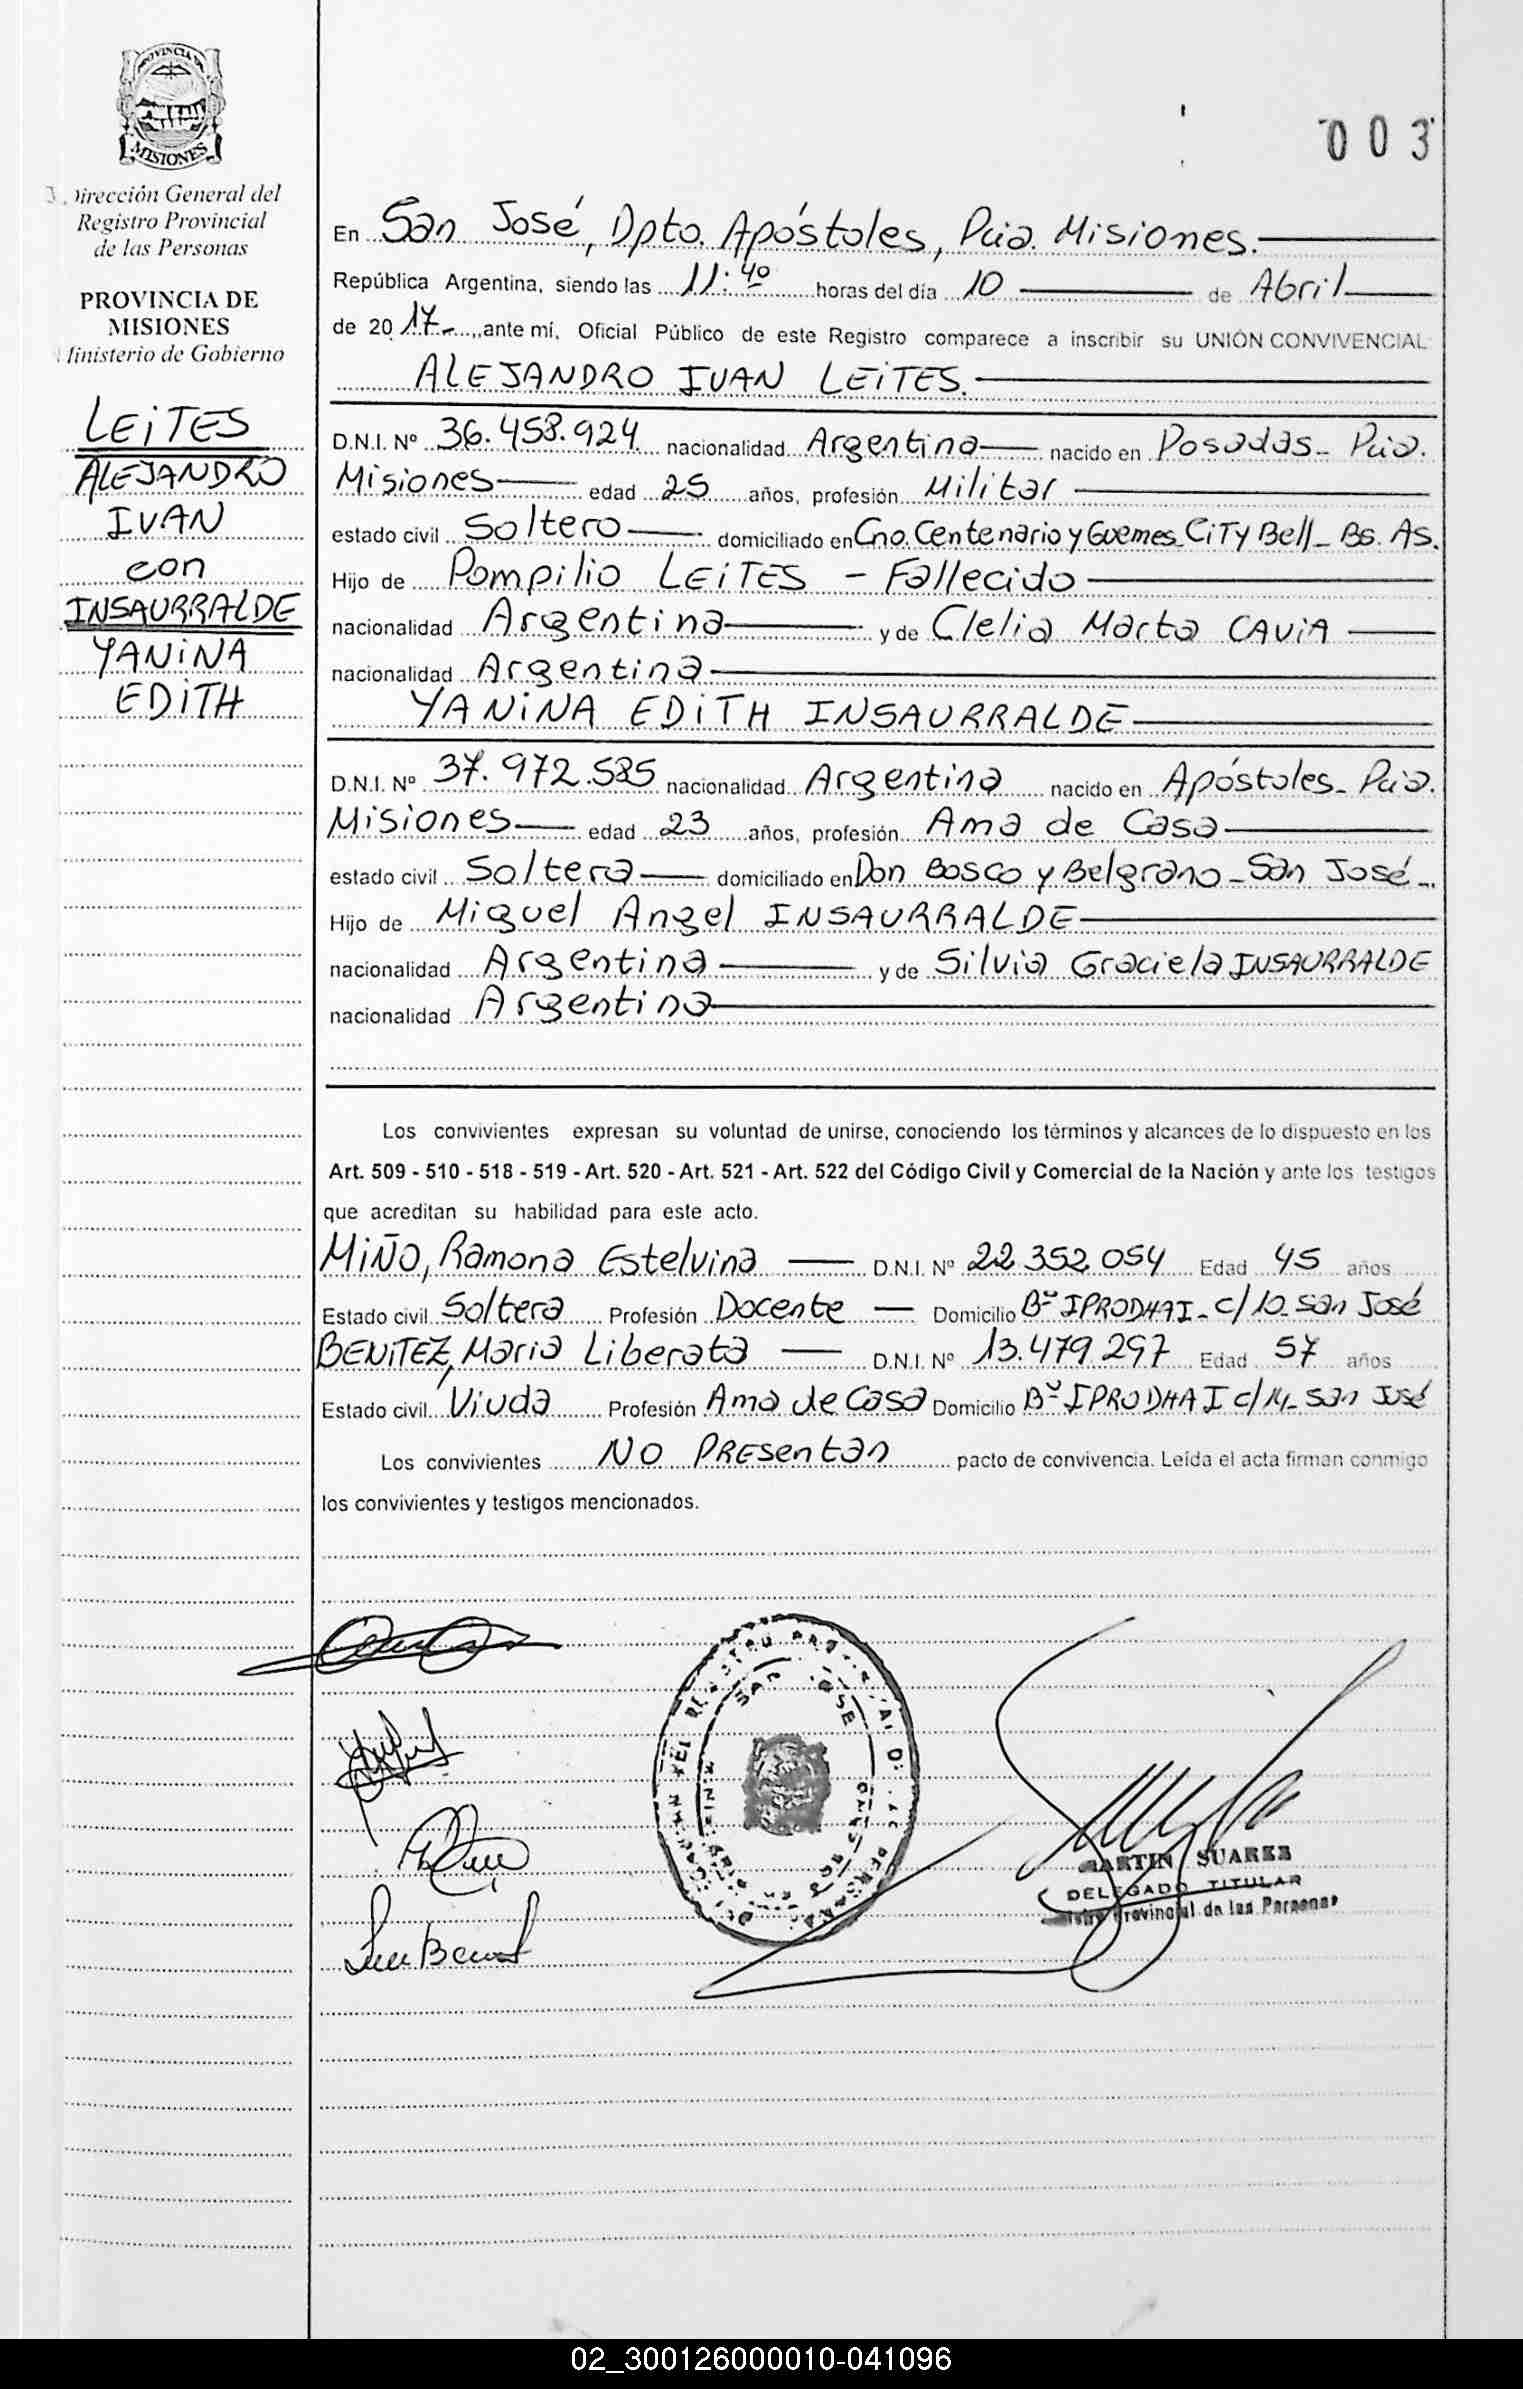 PROVINCIA DE
MISIONES
Dirección General del
Registro Provincial
de las Personas
PROVINCIA DE
MISIONES
Ministerio de Gobierno
LEiTES
ALEJANDRO
IVAN
con
INSAURRALDE
YANiNA
EDiTH
003
En San José, Dpto. Apóstoles, Pcia. Misiones.
República Argentina, siendo las 11:40 horas del día 10 de Abril
de 2017-, ante mí, Oficial Público de este Registro comparece a inscribir su UNIÓN CONVIVENCIAL
ALEJANDRO IVAN LEiTES.
D.N.I. Nº 36.458.924 nacionalidad Argentina nacido en Posadas- Pcia.
Misiones edad 25 años, profesión Militar
estado civil Soltero domiciliado en Cno. Centenario y Guemes- CiTy Bell- Bs. As.
Hijo de Pompilio LEiTES - Fallecido
nacionalidad Argentina y de Clelia Marta CAViA
nacionalidad Argentina
YANiNA EDiTH INSAURRALDE
D.N.I. Nº 37.972.585 nacionalidad Argentina nacido en Apóstoles- Pcia.
Misiones edad 23 años, profesión Ama de Casa
estado civil Soltera domiciliado en Don Bosco y Belgrano- San José-
Hijo de Miguel Angel INSAURRALDE
nacionalidad Argentina y de Silvia Graciela INSAURRALDE
nacionalidad Argentina
Los convivientes expresan su voluntad de unirse, conociendo los términos y alcances de lo dispuesto en los
Art. 509 - 510 - 518 - 519 - Art. 520 - Art. 521 - Art. 522 del Código Civil y Comercial de la Nación y ante los testigos
que acreditan su habilidad para este acto.
MiÑO, Ramona Estelvina D.N.I. Nº 22.352.054 Edad 45 años
Estado civil Soltera Profesión Docente Domicilio Bº IPRODHAI- c/10- San José
BENiTEZ, Maria Liberata D.N.I. Nº 13.479.297 Edad 57 años
Estado civil Viuda Profesión Ama de Casa Domicilio Bº IPRODHAI c/14- San José
Los convivientes NO PRESentan pacto de convivencia. Leída el acta firman conmigo
los convivientes y testigos mencionados.
SAN JOSE
MARTIN SUAREZ
DELEGADO TITULAR
Provincial de las Personas
02_300126000010-041096